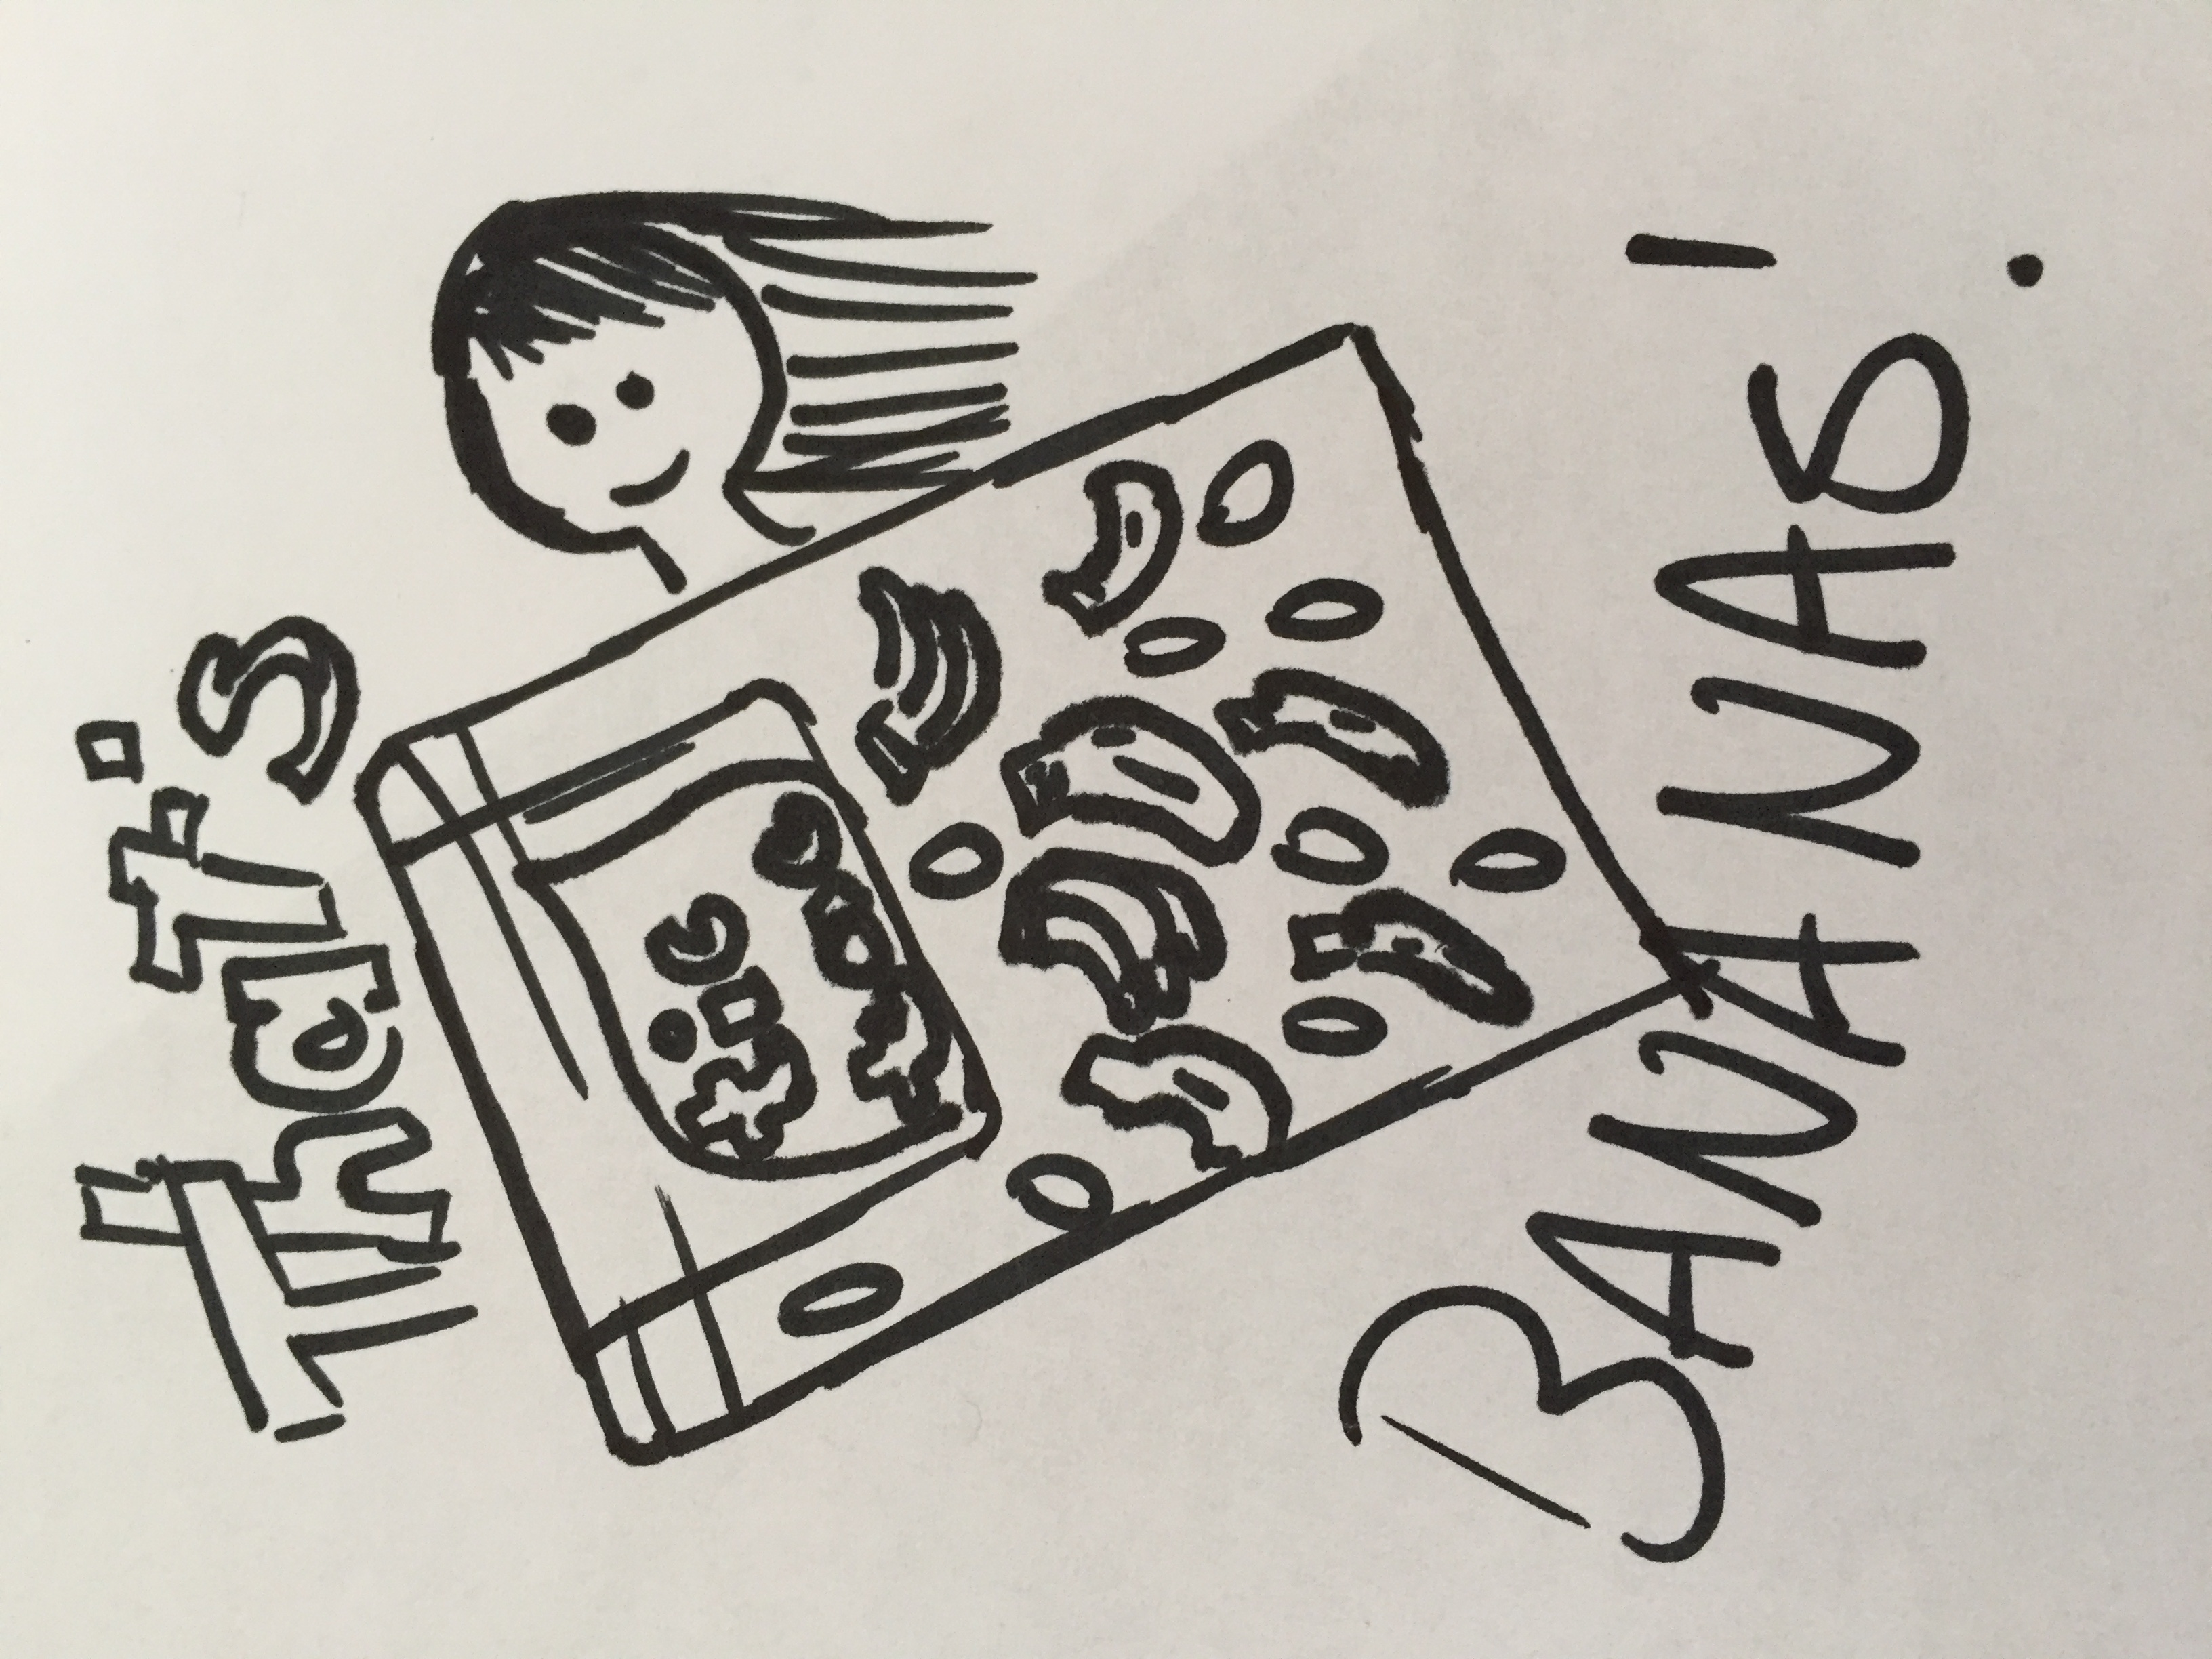 That's
tic
tac
BANANAS!